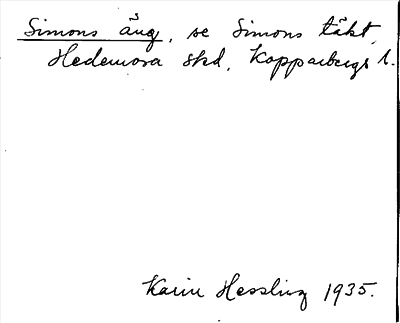 Simons äng, se Simons täkt,
Hedemora skd, Kopparbergs l.
Karin Hessling 1935.